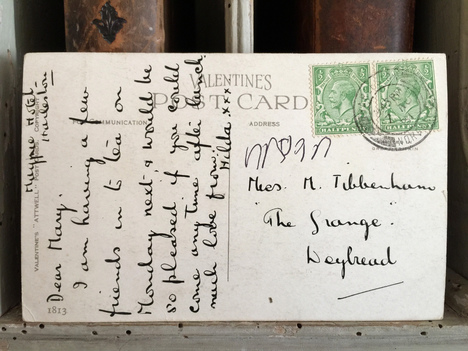 VALENTINES
POST CARD
COMMUNICATION
ADDRESS
Magpie Hotel
Harleston
Dear Mary.
I am having a few
friends in to tea on
Monday next & would be
so pleased if you could
come any time after lunch.
much love from.
Hilda. xxx
Miss. M. Tibbenham
"The Grange".
Weybread
VALENTINE'S "ATTWELL" POST
1813
HALFPENNY
HALFPENNY